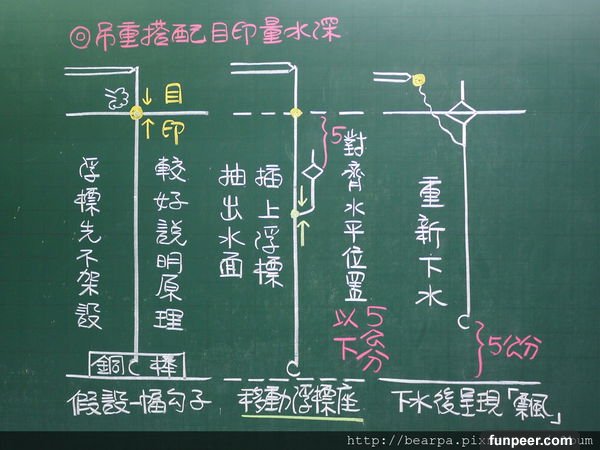 ◎吊重搭配目印量水深
目
印
浮標先不架設
較好說明原理
銅 棒
假設一幅勾子
5
抽出水面
插上浮標
對齊水平位置
5公分
以下
移動浮標座
重新下水
5公分
下水後呈現「飄」
http://bearpa.pix
funpeer.com